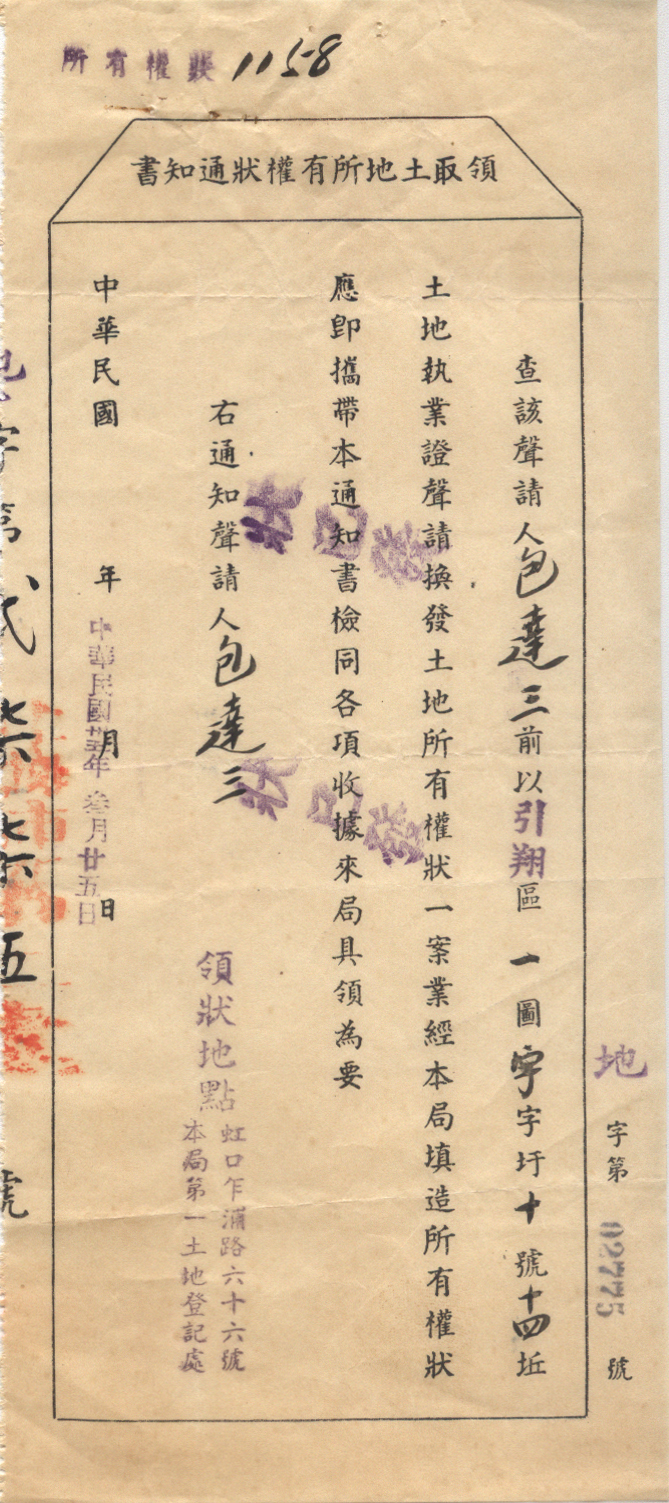 所有權狀 1158
領取土地所有權狀通知書
地字第02775號
查該聲請人包達三前以引翔區一圖字圩十號十四坵
土地執業證聲請換發土地所有權狀一案業經本局填造所有權狀
應卽攜帶本通知書檢同各項收據來局具領為要
狀已發
狀已發
右通知聲請人包達三
領狀地點
虹口乍浦路六十六號
本局第一土地登記處
中華民國 年 月 日
中華民國卅五年叁月廿五日
地字第弍七六七六五號